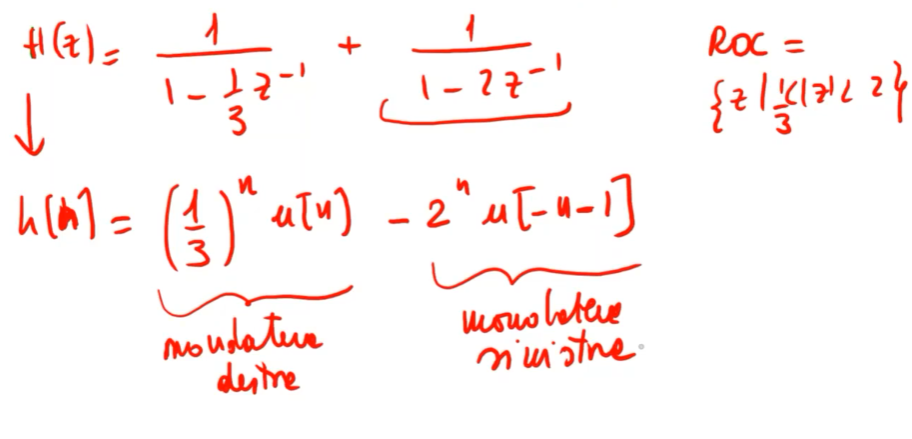 H(z) = 1 / (1 - 1/3 z⁻¹) + 1 / (1 - 2z⁻¹)
ROC = {z | 1/3 < |z| < 2}
h[n] = (1/3)ⁿ u[n] - 2ⁿ u[-n-1]
monolatera destra
monolatera sinistra